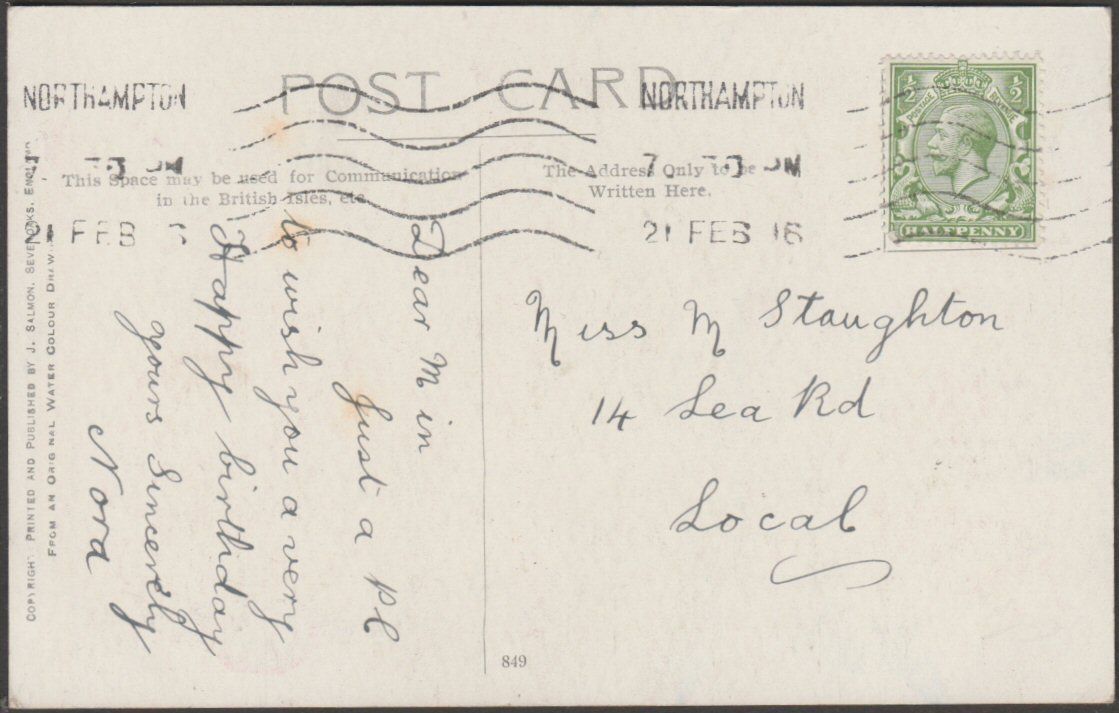 POST CARD
NORTHAMPTON
NORTHAMPTON
7 PM
21 FEB 16
FEB
This Space may be used for Communication
in the British Isles, etc
The Address Only to be
Written Here.
½ ½
POSTAGE REVENUE
HALFPENNY
Dear Min
Just a PC
to wish you a very
Happy birthday
yours Sincerely
Nora
Miss M Staughton
14 Lea Rd
Local
849
COPYRIGHT PRINTED AND PUBLISHED BY J. SALMON, SEVENOAKS, ENGLAND
FROM AN ORIGINAL WATER COLOUR